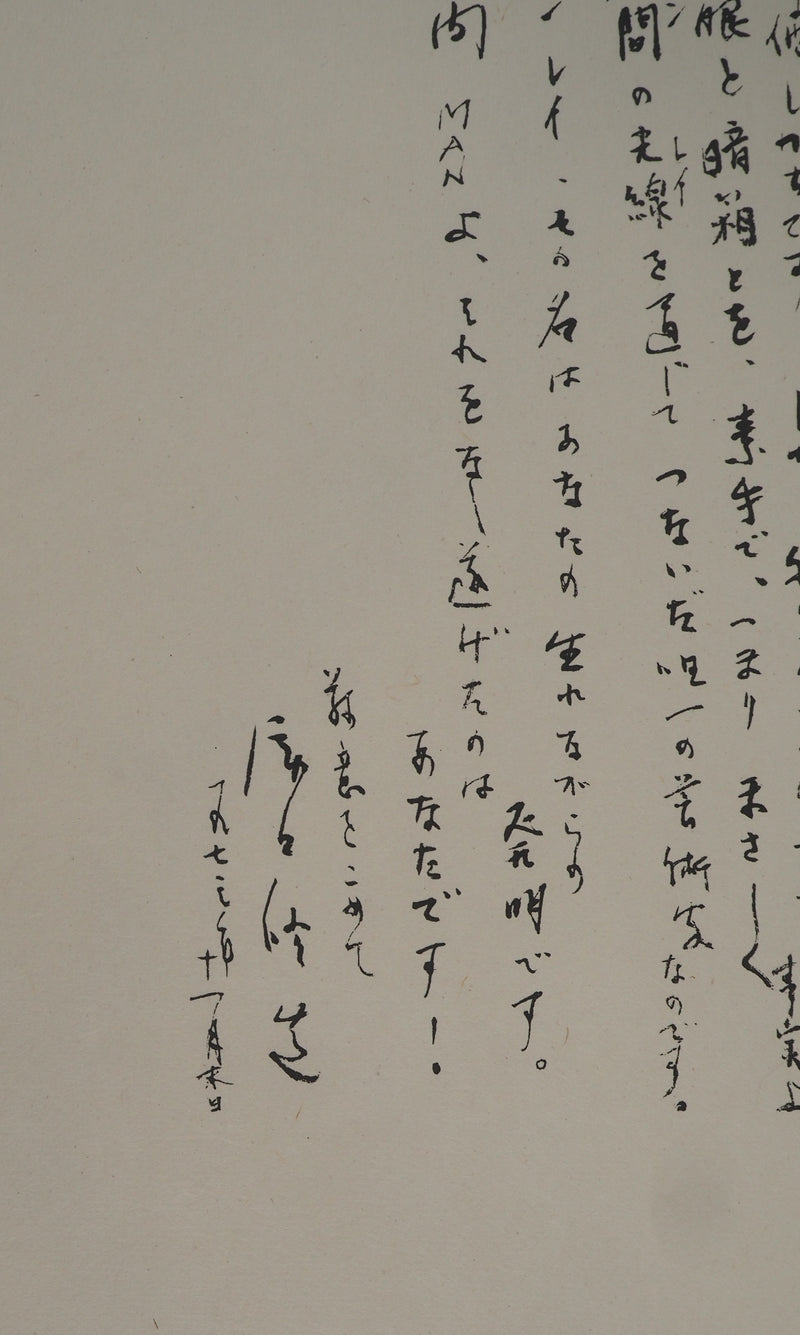 眼と暗箱とを、素手で、つまりまさしく
間の光線を通じてつないだ唯一の芸術家なのです。
レイ
レイ、その名はあなたの生れながらの
発明です。
間 MANよ、それをなし遂げたのは
あなたです！
敬意をこめて
瀧口修造
一九七三年十一月末日